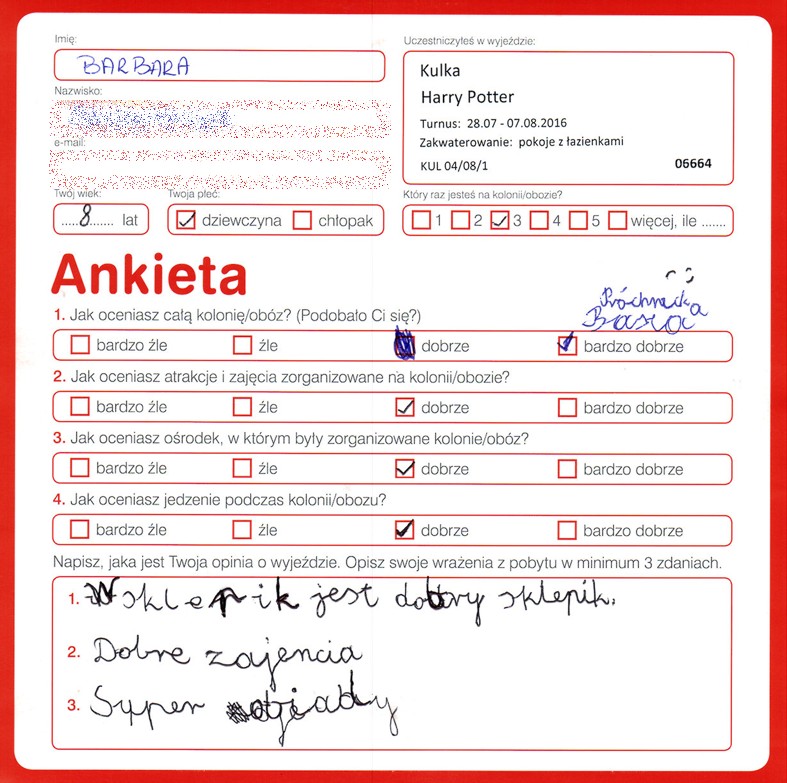 Imię:
BARBARA
Uczestniczyłeś w wyjeździe:
Kulka
Harry Potter
Turnus: 28.07 - 07.08.2016
Zakwaterowanie: pokoje z łazienkami
KUL 04/08/1 06664
Nazwisko:
e-mail:
Twój wiek:
8 lat
Twoja płeć:
dziewczyna chłopak
Który raz jesteś na kolonii/obozie?
1 2 3 4 5 więcej, ile .......
Ankieta
Basia
1. Jak oceniasz całą kolonię/obóz? (Podobało Ci się?)
bardzo źle źle dobrze bardzo dobrze
2. Jak oceniasz atrakcje i zajęcia zorganizowane na kolonii/obozie?
bardzo źle źle dobrze bardzo dobrze
3. Jak oceniasz ośrodek, w którym były zorganizowane kolonie/obóz?
bardzo źle źle dobrze bardzo dobrze
4. Jak oceniasz jedzenie podczas kolonii/obozu?
bardzo źle źle dobrze bardzo dobrze
Napisz, jaka jest Twoja opinia o wyjeździe. Opisz swoje wrażenia z pobytu w minimum 3 zdaniach.
1. sklepik jest dobry sklepik.
2. Dobre zajencia
3. Syper objady